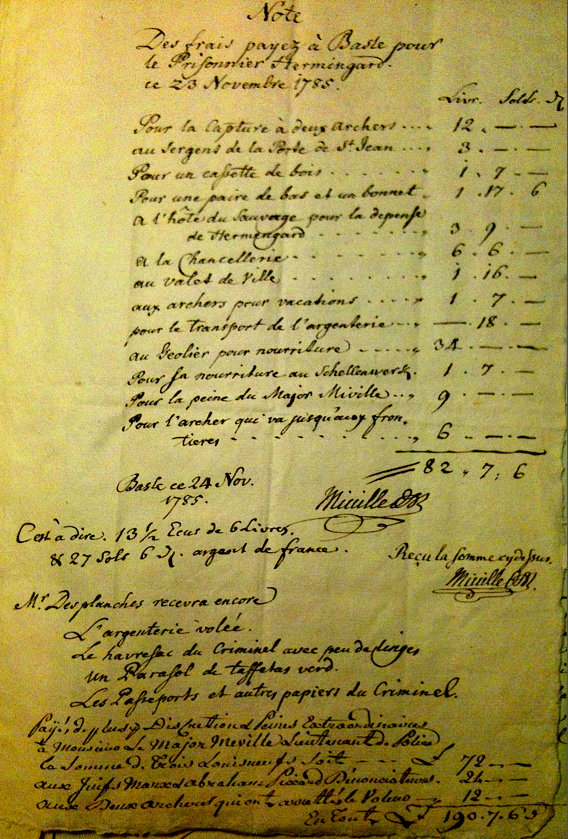 Note
Des frais payez à Basle pour
le Prisonnier Hermingard.
ce 23 Novembre 1785.
Livr. Sols. ₰
Pour la Capture à deux archers .... 12 . — . —
au Sergens de la Porte de St Jean .... 3 . — . —
Pour un cassette de bois . . . . 1 . 7 . —
Pour une paire de bas et un bonnet . 1 . 17 . 6
a l'hôte du Sauvage pour la depense
de Hermengard . . . . . 3 . 9 . —
a la Chancellerie . . . . . 6 . 6 . —
au valet de Ville . . . . . 1 . 16 . —
aux archers pour vacations . . . . 1 . 7 . —
pour le transport de l'argenterie . . . — . 18 . —
au Geolier pour nourriture . . . . 34 . — . —
Pour sa nourriture au Schellenwerk. 1 . 7 . —
Pour la peine du Major Miville . . . 9 . — . —
Pour l'archer qui va jusqu'aux fron-
tieres . . . . . . . 6 . — . —
82 . 7 . 6
Basle ce 24 Nov.
1785.
Miville
C'est à dire. 13 ½ Ecus de 6 Livres.
& 27 Sols 6 ₰. argent de france.
Reçu la somme cydessus.
Miville
Mr. Desplanches recevra encore
L'argenterie volée.
Le havresac du Criminel avec peu de linges
un Parasol de taffetas verd.
Les Passeports et autres papiers du Criminel.
Payé, d. plus, Discretion & Peines Extraordinaires
à Monsieur Le Major Meville Lieutenant de Police
la Somme d. Trois Louisneufs Soit — £ 72 — —
aux Juifs Marx & Abraham Picard Dénonciateurs. 24 — —
aux Deux archers qui ont arretté le Voleur 12 — —
En Tout £ 190 . 7 . 6 ₰